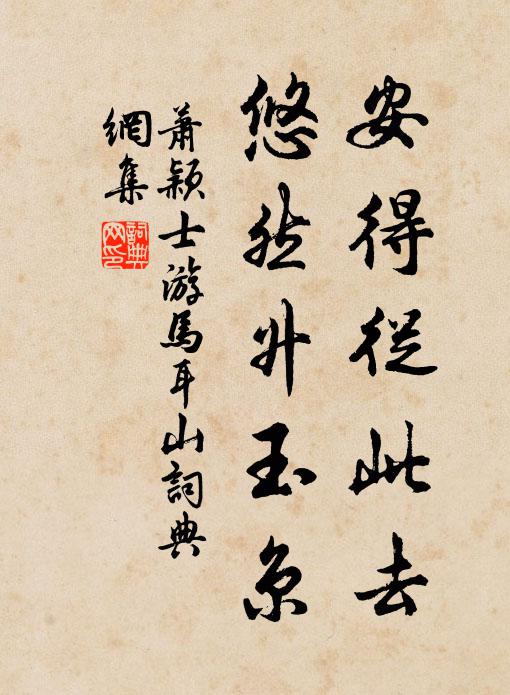 安得從此去
悠然升玉京
蕭穎士游馬耳山詞典
網集
詞典
网印